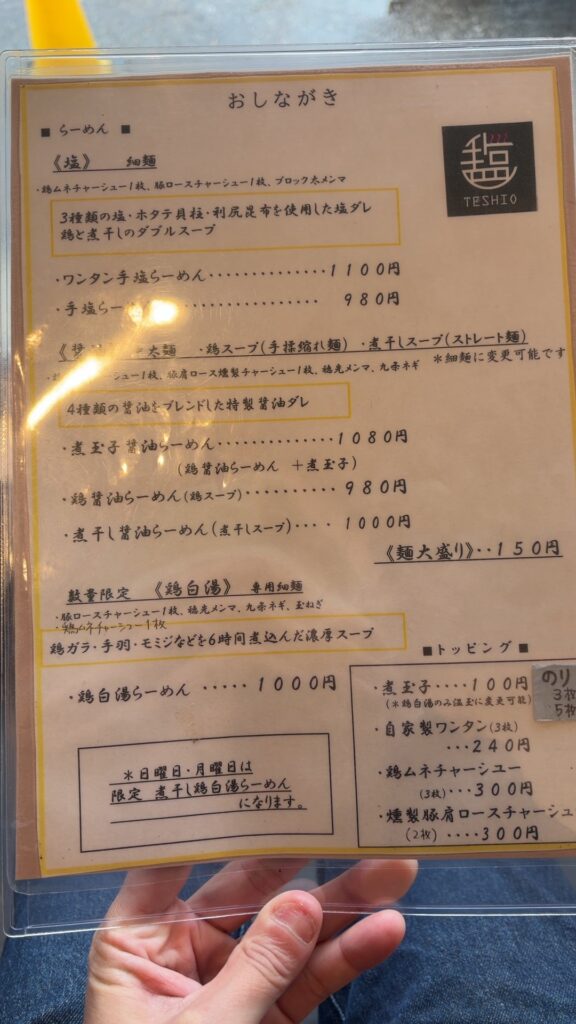 おしながき
■ らーめん ■
TESHIO
《塩》 細麺
・鶏ムネチャーシュー1枚、豚ロースチャーシュー1枚、ブロック太メンマ
3種類の塩・ホタテ貝柱・利尻昆布を使用した塩ダレ
鶏と煮干しのダブルスープ
・ワンタン手塩らーめん・・・・・・・・・・・・・・1100円
・手塩らーめん・・・・・・・・・・・・・・・・ 980円
太麺 ・鶏スープ(手揉縮れ麺) ・煮干しスープ(ストレート麺)
＊細麺に変更可能です
シュー1枚、豚肩ロース燻製チャーシュー1枚、穂先メンマ、九条ネギ
4種類の醤油をブレンドした特製醤油ダレ
・煮玉子醤油らーめん・・・・・・・・・・・・・1080円
(鶏醤油らーめん ＋煮玉子)
・鶏醤油らーめん(鶏スープ)・・・・・・・・・・980円
・煮干し醤油らーめん(煮干しスープ)・・・・1000円
《麺大盛り》・・150円
数量限定 《鶏白湯》 専用細麺
・豚ロースチャーシュー1枚、穂先メンマ、九条ネギ、玉ねぎ
・鶏ムネチャーシュー1枚
鶏ガラ・手羽・モミジなどを6時間煮込んだ濃厚スープ
・鶏白湯らーめん ・・・・・1000円
＊日曜日・月曜日は
限定 煮干し鶏白湯らーめん
になります。
■トッピング■
・煮玉子・・・・100円
(＊鶏白湯のみ温玉に変更可能)
のり
3枚
5枚
・自家製ワンタン(3枚)
・・・240円
・鶏ムネチャーシュー
(3枚)・・・300円
・燻製豚肩ロースチャーシュ
(2枚)・・・・300円